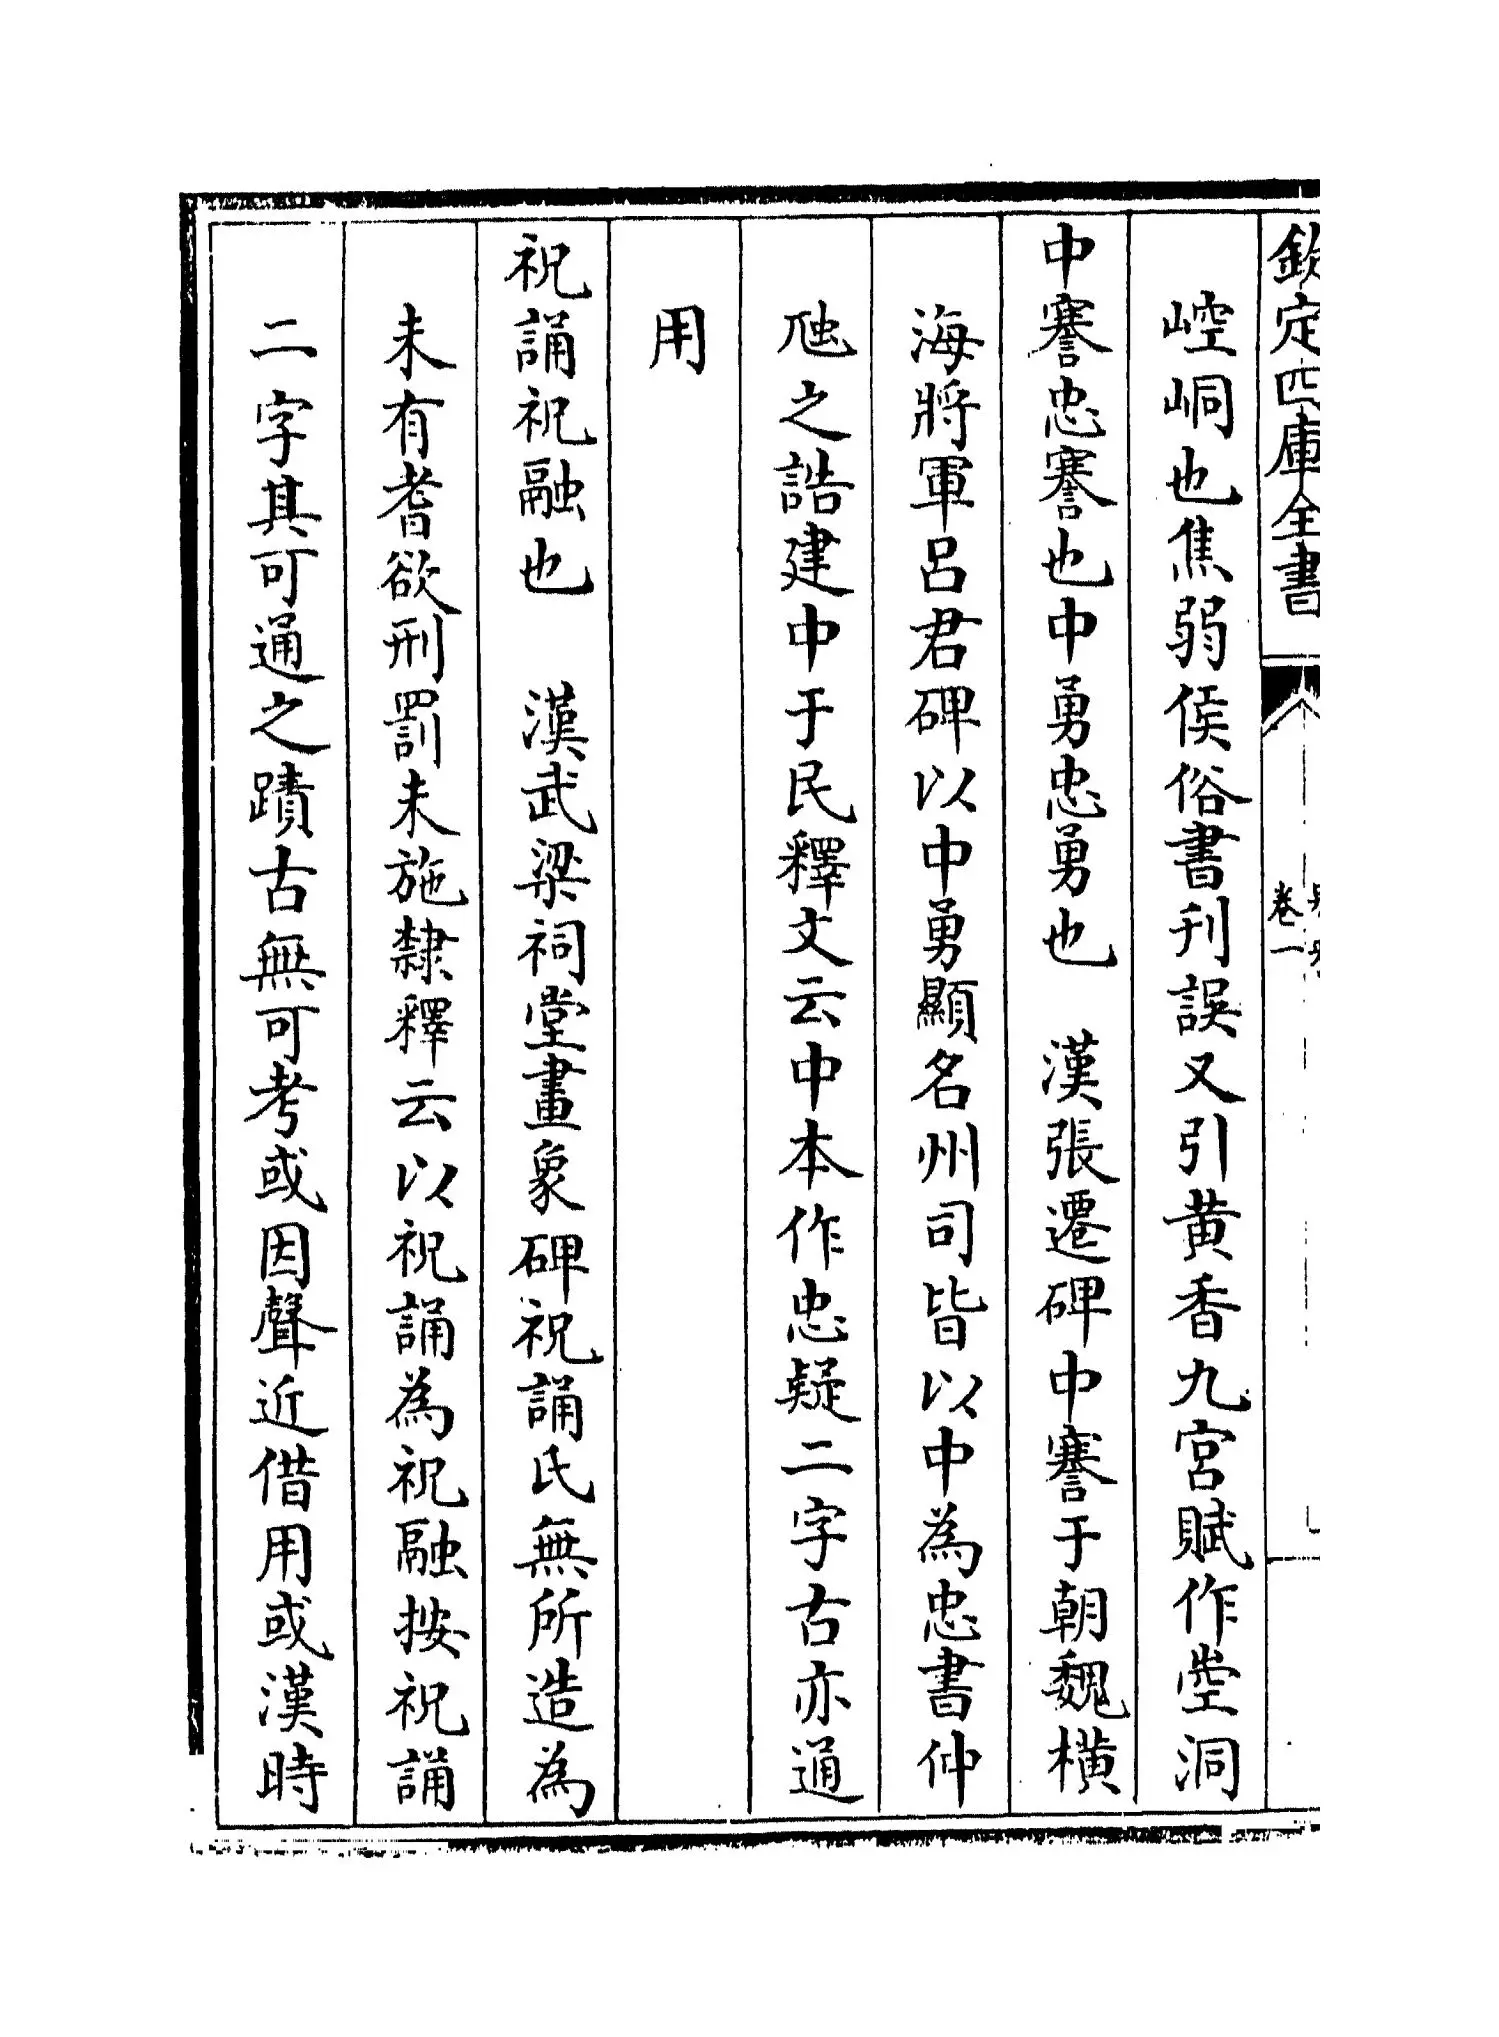 欽定四庫全書
卷一
崆峒也焦弱侯俗書刊誤又引黄香九宫賦作埪洞
中謇忠謇也中勇忠勇也　漢張遷碑中謇于朝魏橫
海將軍呂君碑以中勇顯名州司皆以中為忠書仲
虺之誥建中于民釋文云中本作忠疑二字古亦通
用
祝誦祝融也　漢武梁祠堂畫象碑祝誦氏無所造為
未有耆欲刑罰未施隸釋云以祝誦為祝融按祝誦
二字其可通之蹟古無可考或因聲近借用或漢時